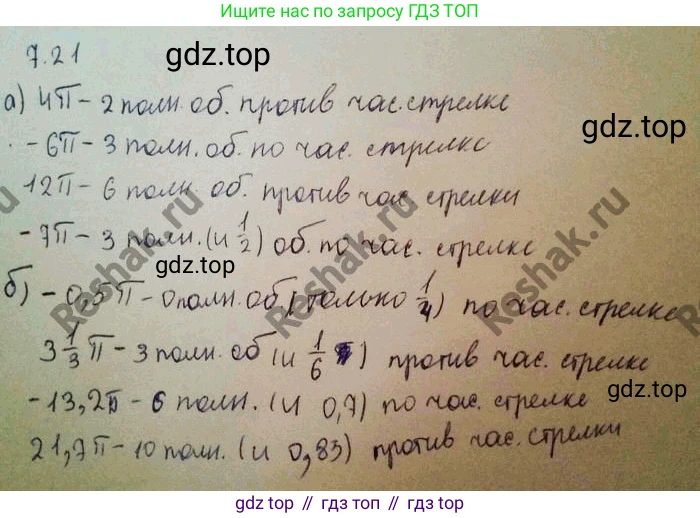 Ищите нас по запросу ГДЗ ТОП
gdz.top
7.21
а) 4π – 2 полн. об. против час. стрелке
gdz.top
- 6π – 3 полн. об. по час. стрелке
12π – 6 полн. об. против час. стрелки
- 7π – 3 полн. (и 1/2) об. по час. стрелке
gdz.top
б) - 0,5π – 0 полн. об. (только 1/4) по час. стрелке
3 1/3 π – 3 полн. об (и 1/6) против час. стрелке
gdz.top
- 13,2π – 6 полн. (и 0,7) по час. стрелке
21,7π – 10 полн. (и 0,83) против час. стрелки
Reshak.ru
Reshak.ru
Reshak.ru
gdz top // гдз топ // gdz.top